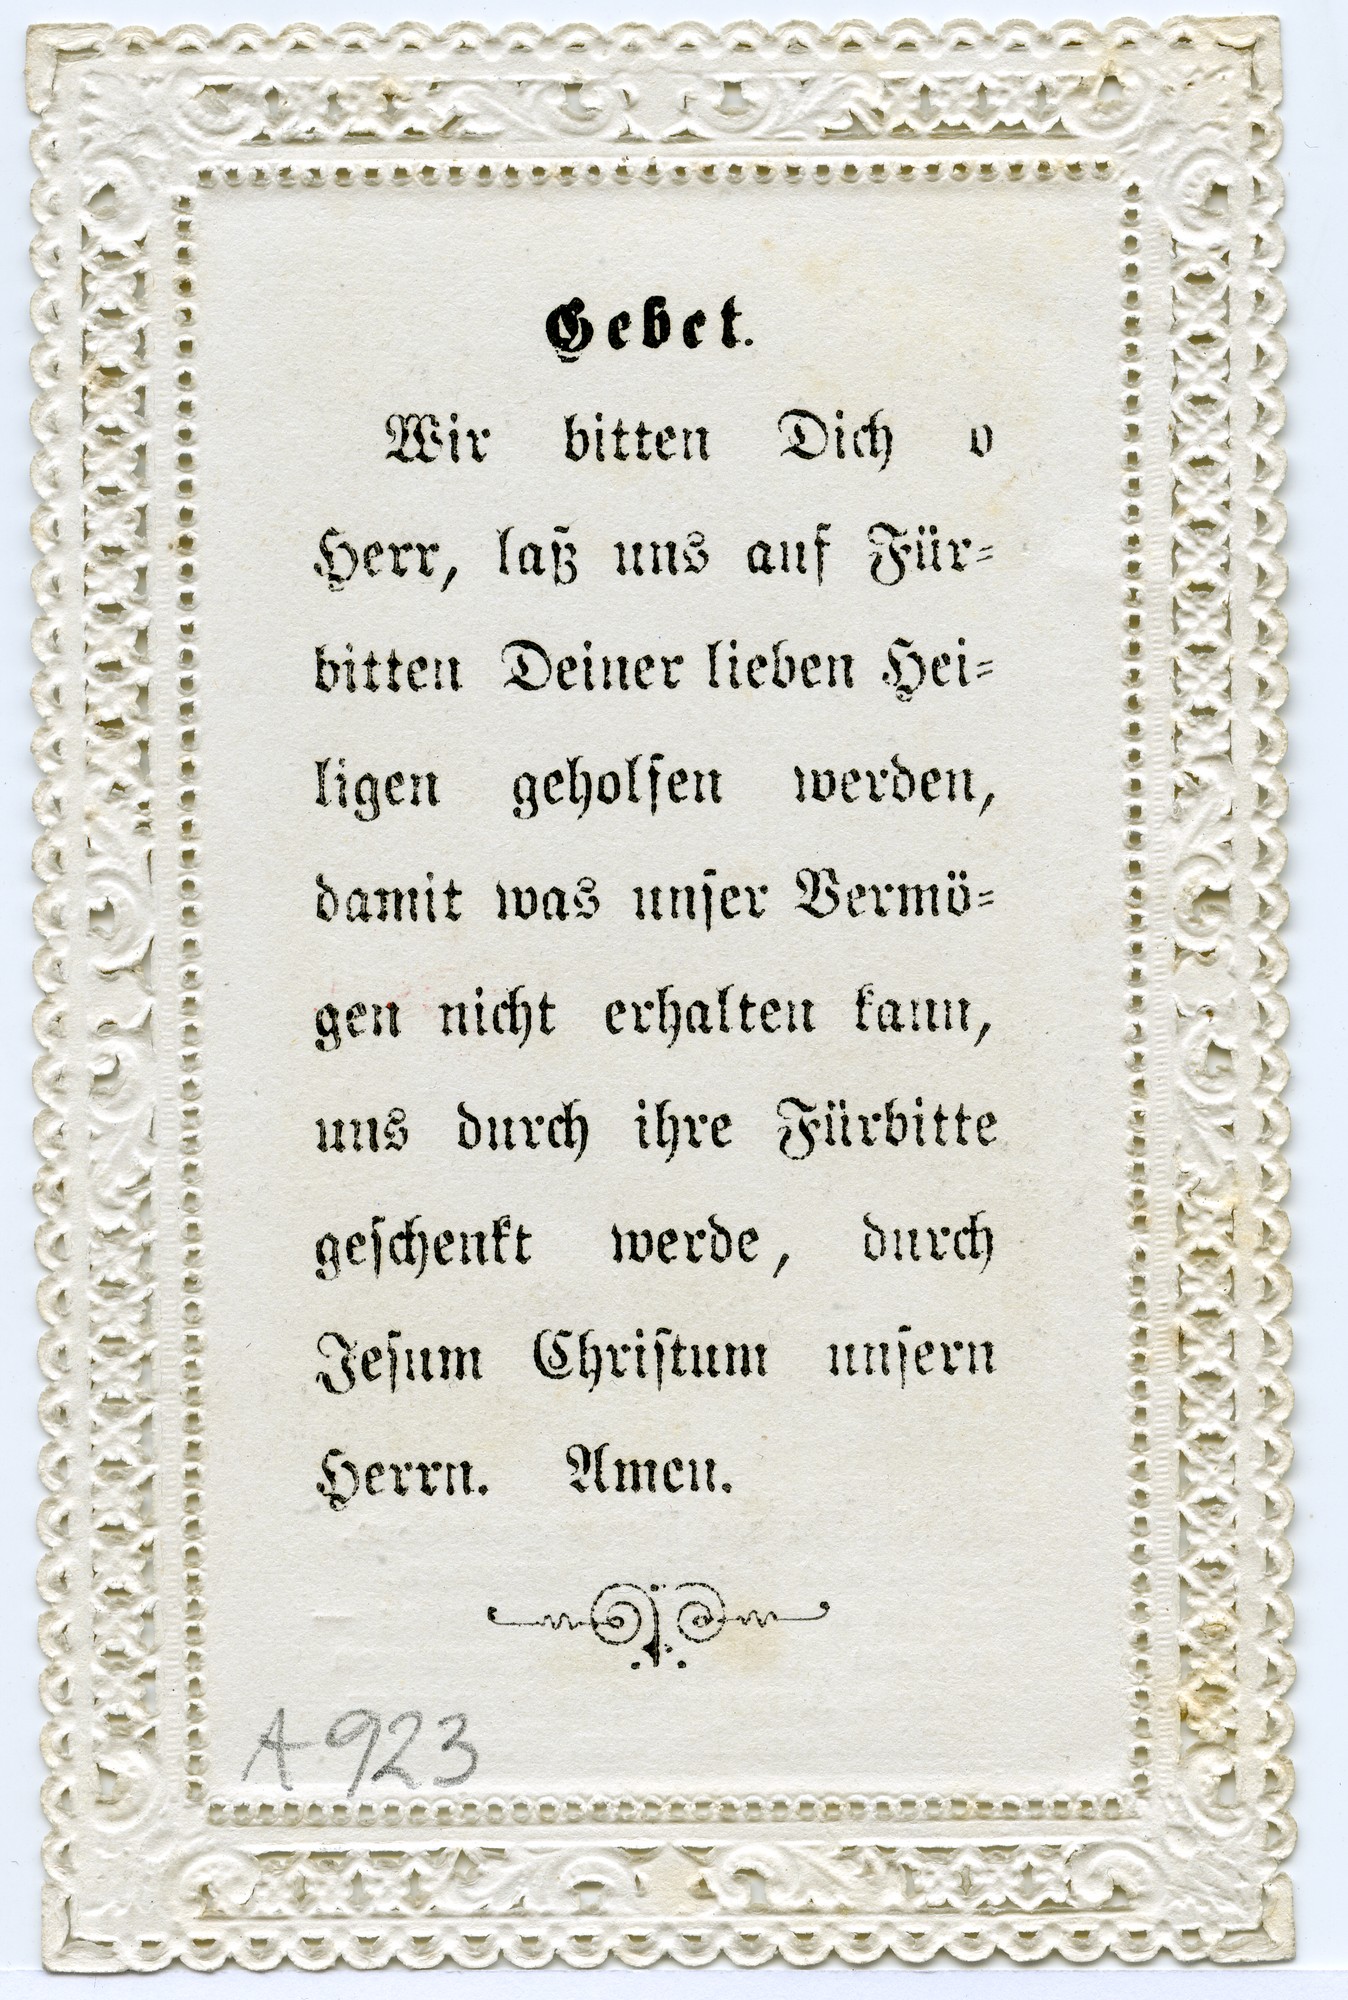 Gebet.
Wir bitten Dich o
Herr, laß uns auf Für-
bitten Deiner lieben Hei-
ligen geholfen werden,
damit was unser Vermö-
gen nicht erhalten kann,
uns durch ihre Fürbitte
geschenkt werde, durch
Jesum Christum unsern
Herrn. Amen.
A 923